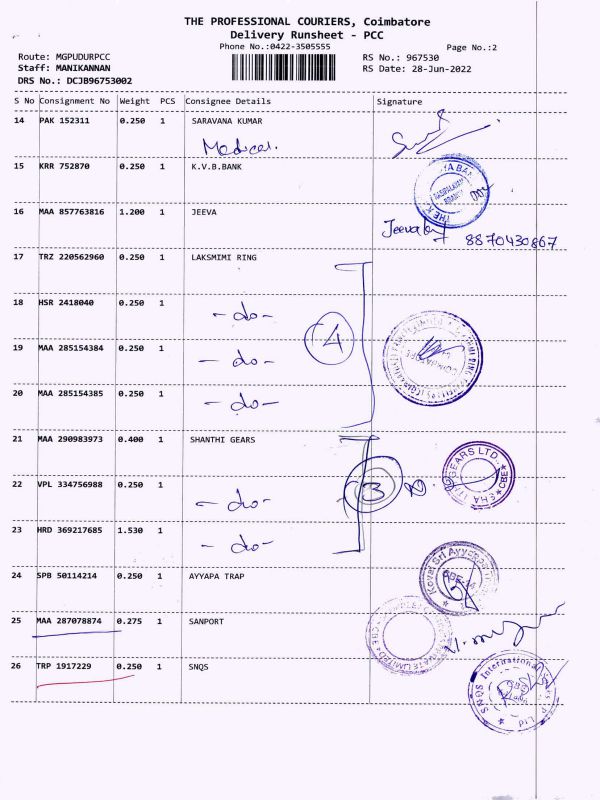 THE PROFESSIONAL COURIERS, Coimbatore
Delivery Runsheet - PCC
Phone No.:0422-3505555
Page No.:2
Route: MGPUDURPCC
RS No.: 967530
Staff: MANIKANNAN
RS Date: 28-Jun-2022
DRS No.: DCJB96753002
S No Consignment No Weight PCS Consignee Details Signature
14 PAK 152311 0.250 1 SARAVANA KUMAR
Medical.
15 KRR 752870 0.250 1 K.V.B.BANK
16 MAA 857763816 1.200 1 JEEVA
Jeeva
8870430867
17 TRZ 220562960 0.250 1 LAKSMIMI RING
18 HSR 2418040 0.250 1
- do -
4
19 MAA 285154384 0.250 1
- do -
20 MAA 285154385 0.250 1
- do -
21 MAA 290983973 0.400 1 SHANTHI GEARS
GEARS LTD.
CBE
22 VPL 334756988 0.250 1
- do -
3
23 HRD 369217685 1.530 1
- do -
24 SPB 50114214 0.250 1 AYYAPA TRAP
Kovai Sri Ayyappa
25 MAA 287078874 0.275 1 SANPORT
26 TRP 1917229 0.250 1 SNQS
SNQS International